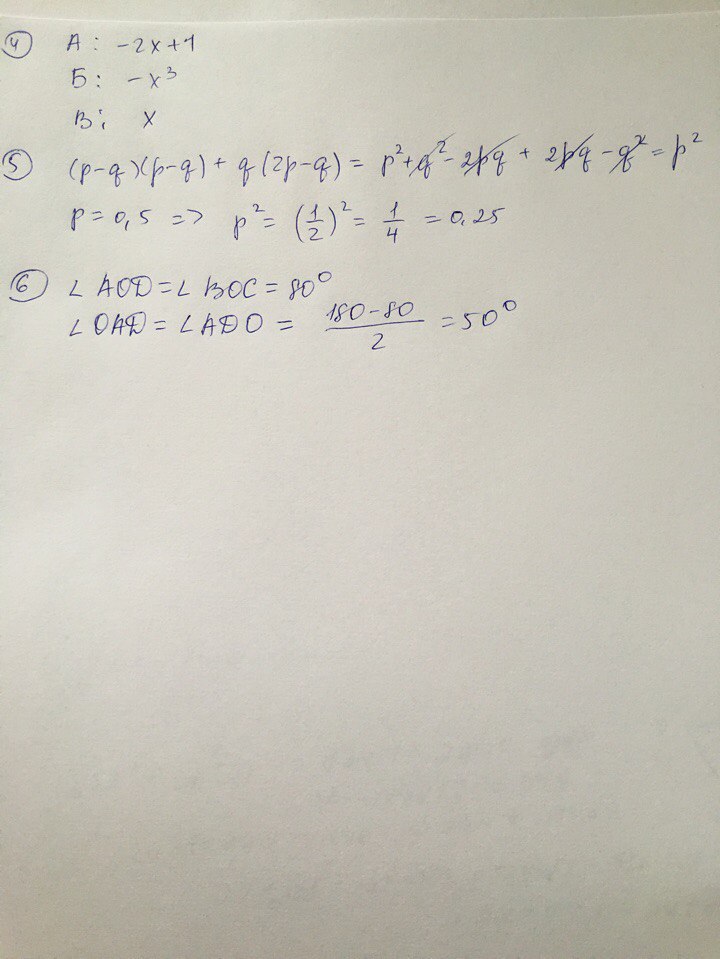 4 А: -2x+1
Б: -x³
В: x
5 (p-q)(p-q) + q(2p-q) = p²+q²-2pq + 2pq-q² = p²
p = 0,5 => p² = (1/2)² = 1/4 = 0.25
6 ∠AOD = ∠BOC = 80°
∠OAD = ∠ADO = (180-80)/2 = 50°